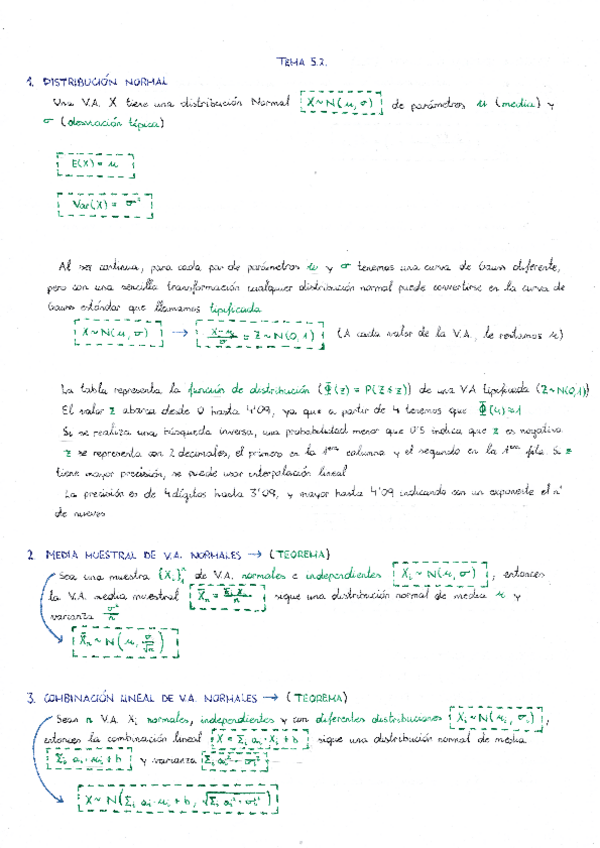 TEMA 5.2.
1. DISTRIBUCIÓN NORMAL
Una V.A. X tiene una distribución Normal X ~ N(μ, σ) de parámetros μ (media) y
σ (desviación típica)
E(X) = μ
Var(X) = σ²
Al ser continua, para cada par de parámetros μ y σ tenemos una curva de Gauss diferente,
pero con una sencilla transformación cualquier distribución normal puede convertirse en la curva de
Gauss estándar que llamamos tipificada
X ~ N(μ, σ) → (X-μ)/σ = Z ~ N(0,1) (A cada valor de la V.A., le restamos μ)
La tabla representa la función de distribución (Φ(z) = P(Z ≤ z)) de una V.A tipificada (Z ~ N(0,1))
El valor z abarca desde 0 hasta 4'09, ya que a partir de 4 tenemos que Φ(4) ≈ 1
Si se realiza una búsqueda inversa, una probabilidad menor que 0'5 indica que z es negativo
z se representa con 2 decimales, el primero en la 1era columna y el segundo en la 1era fila. Si z
tiene mayor precisión, se puede usar interpolación lineal
La precisión es de 4 dígitos hasta 3'09, y mayor hasta 4'09 indicando con un exponente el nº
de nueves
2. MEDIA MUESTRAL DE V.A. NORMALES → (TEOREMA)
Sea una muestra {Xi}ⁿ de V.A. normales e independientes Xi ~ N(μ, σ), entonces
la V.A. media muestral X̄n = Σi Xi/n sigue una distribución normal de media μ y
varianza σ²/n
X̄n ~ N(μ, σ/√n)
3. COMBINACIÓN LINEAL DE V.A. NORMALES → (TEOREMA)
Sean n V.A. Xi normales, independientes y con diferentes distribuciones Xi ~ N(μi, σi),
entonces la combinación lineal X = Σi ai·Xi + b sigue una distribución normal de media
Σi ai·μi + b y varianza Σi ai²·σi²
X ~ N(Σi ai·μi + b, √(Σi ai²·σi²))